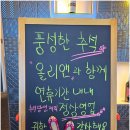 풍성한 추석
"올리앤"과 함께
연휴기간 내내
정상영업
감사해요